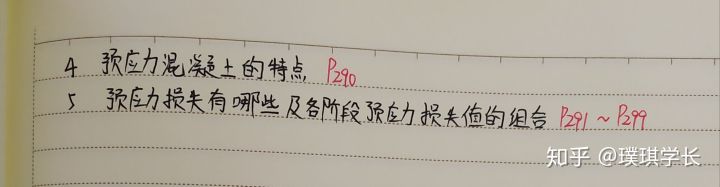 4 预应力混凝土的特点 P290
5 预应力损失有哪些及各阶段预应力损失值的组合 P291~P299
知乎 @璞琪学长